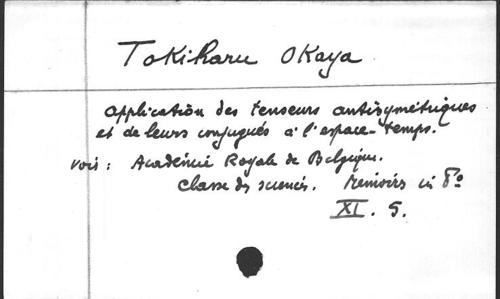 Tokiharu Okaya
Application des tenseurs antisymétriques
et de leurs conjugués à l'espace-temps.
Voir : Académie Royale de Belgique.
Classe des sciences. Memoirs in 8º
XI. 5.